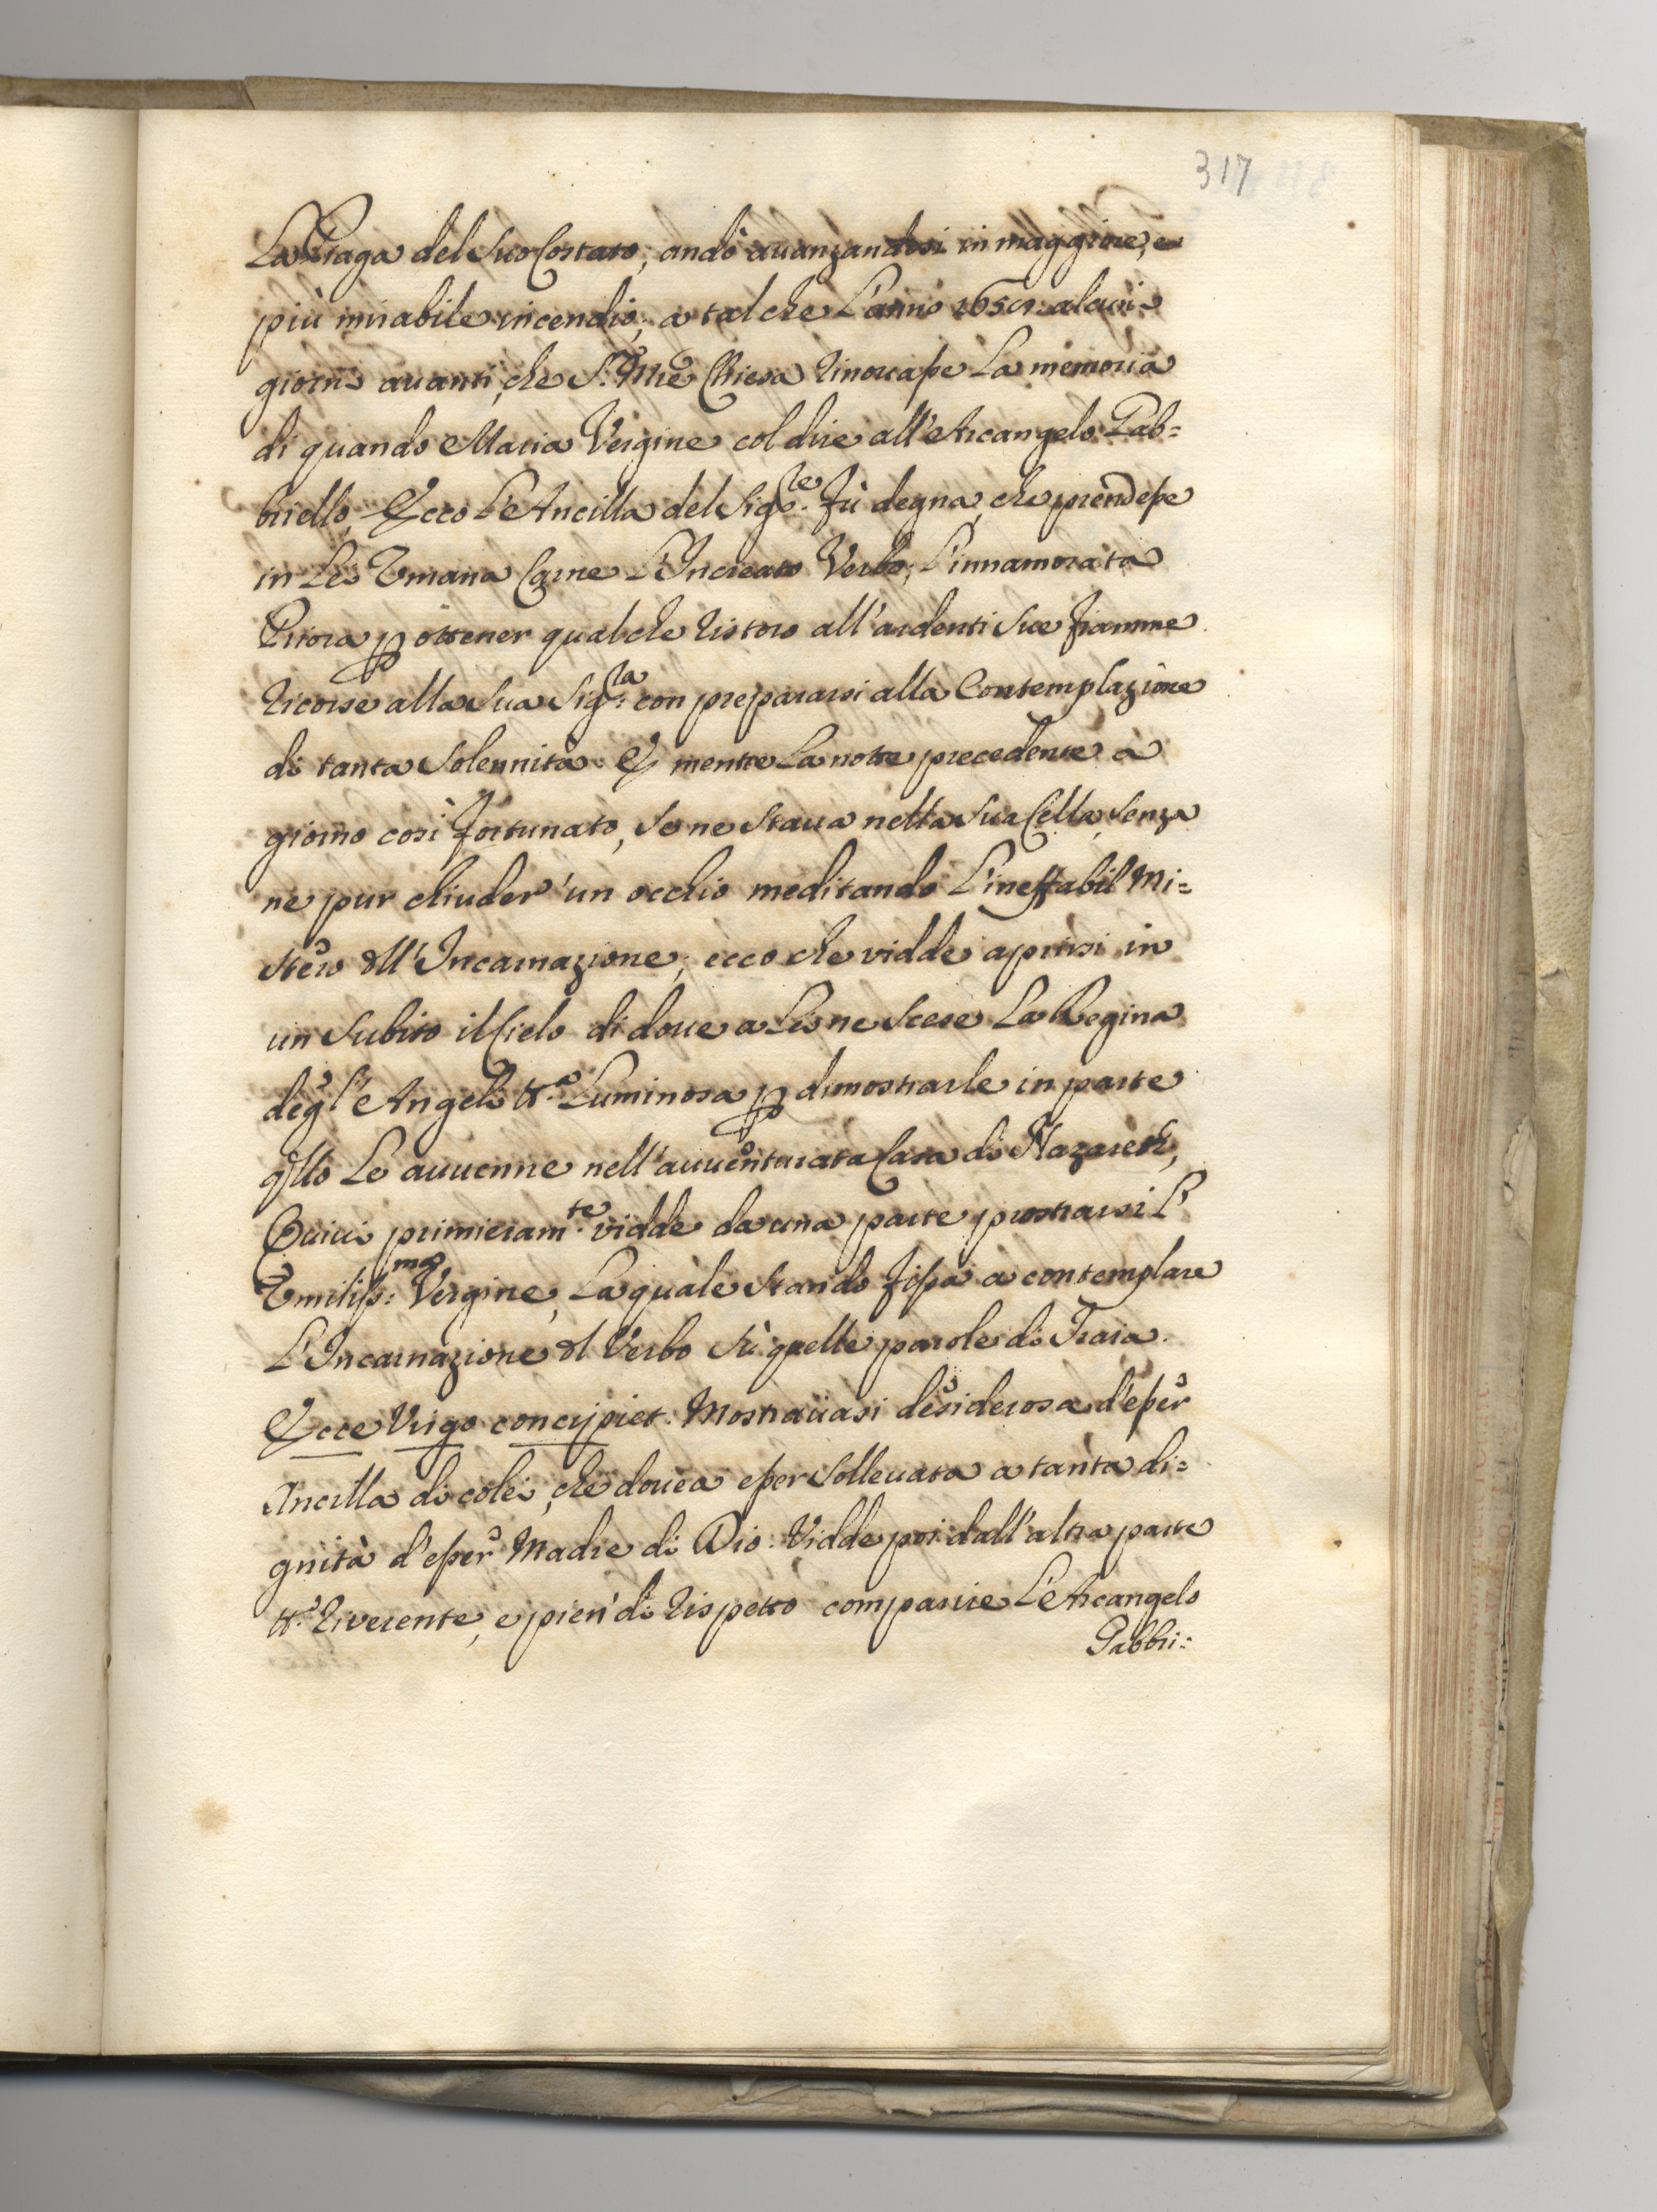 317
La Piaga del Suo Costato, andò auanzandosi in maggiore, e
più mirabile incendio; a tal che L'anno 1659. alcuni
giorni auanti, che S. Mre Chiesa rinouasse La memoria
di quando Maria Vergine col dire all'Arcangelo Gab=
briello, Ecco L'Ancilla del Sig.re fù degna, che prendesse
in Lei Vmana Carne L'Increato Verbo; L'innamorata
Priora p ottener qualche ristoro all'ardenti Sue fiamme
ricorse alla Sua Sig.ra con prepararsi alla Contemplazione
di tanta Solennità. E mentre La notte precedente à
giorno così fortunato, Se ne Staua nella Sua Cella, Senza
ne pur chiuder'un occhio meditando L'ineffabil Mi=
stero dll'Incarnazione; ecco che vidde aprirsi in
un Subito il Cielo di doue a Lei ne Scese La Regina
degl'Angeli tt.a Luminosa p dimostrarle in parte
qllo Le auuenne nell'auuenturata Casa di Nazaret,
Quiui primieram.te vidde da una parte prostrarsi L'
Vmiliss.ma Vergine, La quale Stando fissa a contemplare
L'Incarnazione dl Verbo Sù quelle parole di Isaia.
Ecce Virgo concipiet. Mostrauasi desiderosa d'esser
Ancilla di colei, che douea esser Solleuata a tanta di=
gnità d'esser Madre di Dio. Vidde poi dall'altra parte
tt.o riuerente, e pien' di rispetto comparire L'Arcangelo
Gabbri=